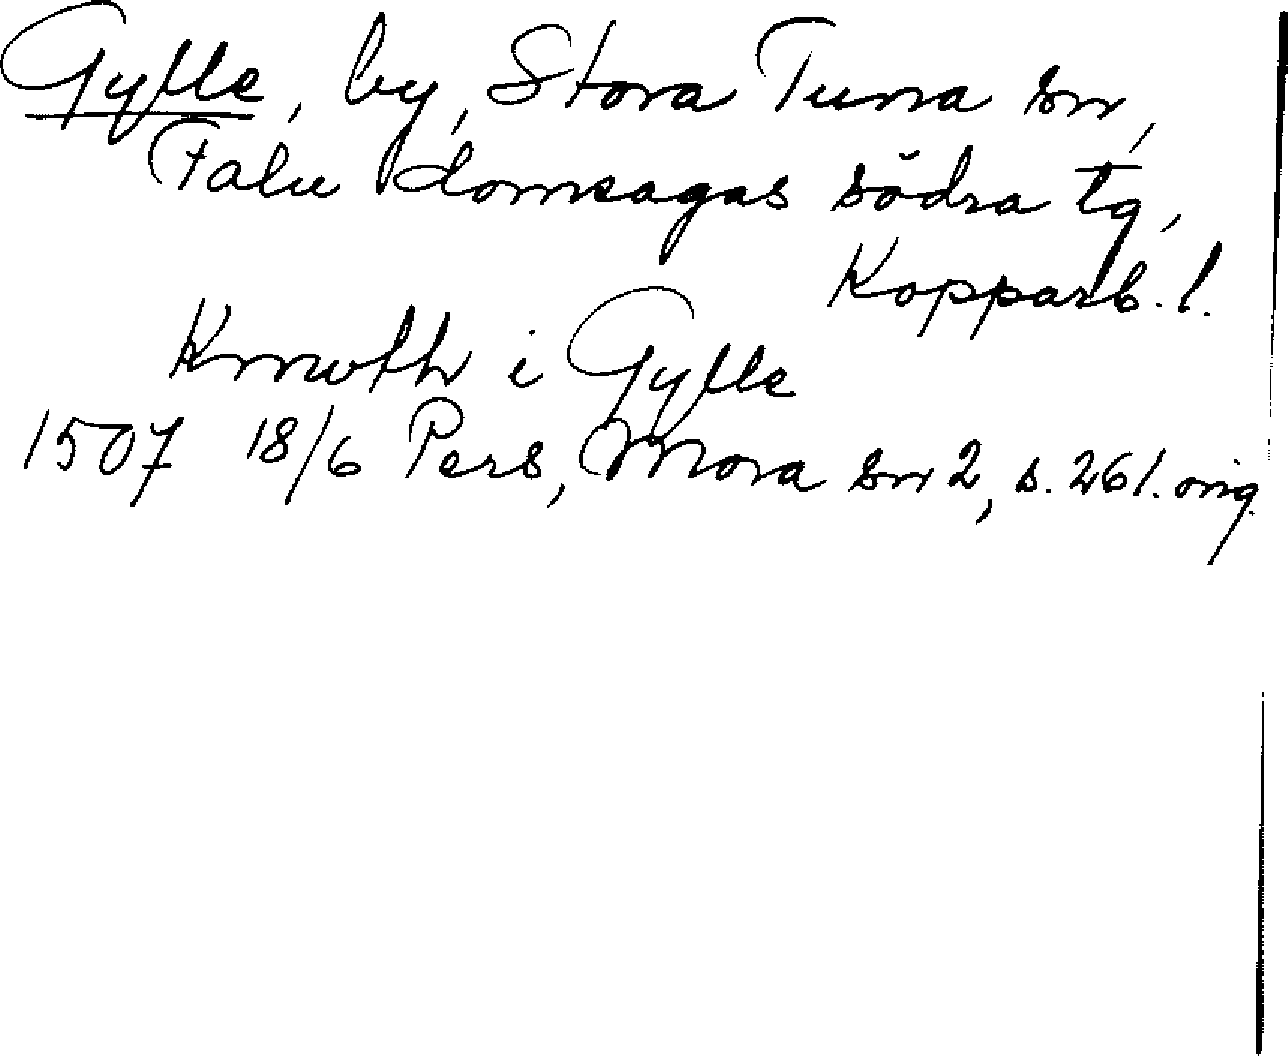 Gylle, by, Stora Tuna sn,
Falu domsagas södra tg,
Kopparb. l.
Knwth i Gylle
1507 18/6 Pers, Mora sn 2, s. 261. orig.